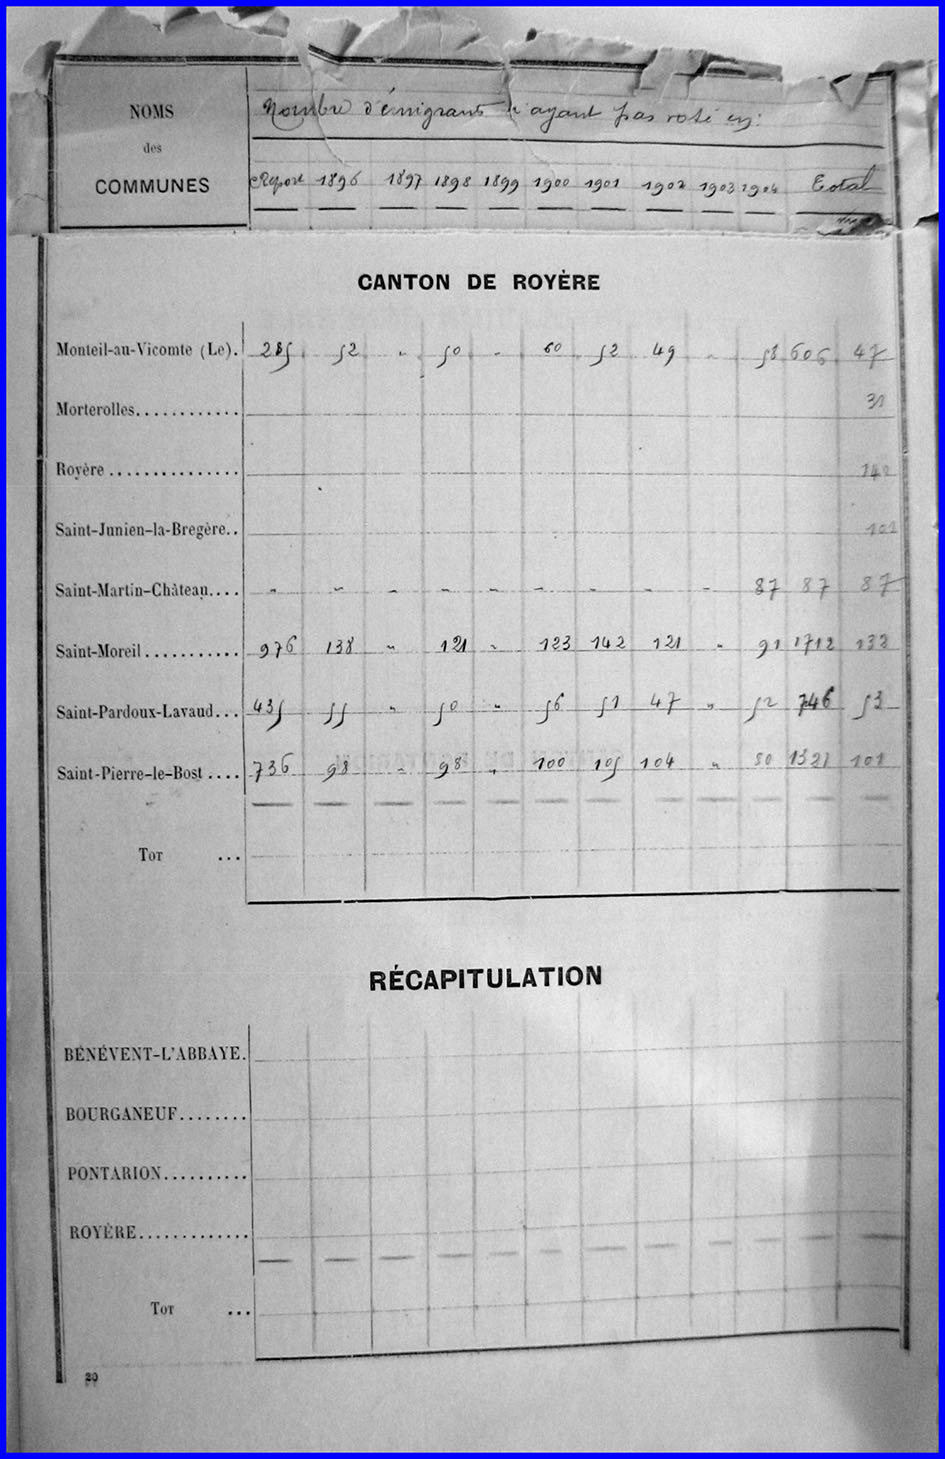 NOMS
des
COMMUNES
Nombre d'émigrants n'ayant pas voté en:
Report 1896 1897 1898 1899 1900 1901 1902 1903 1904 Total
CANTON DE ROYÈRE
Monteil-au-Vicomte (Le). 285 52 " 50 " 60 52 49 " 58 606 47
Morterolles............ 31
Royère ............... 142
Saint-Junien-la-Bregère.. 101
Saint-Martin-Château.... - - - - - - - - - 87 87 87
Saint-Moreil........... 976 138 " 121 " 123 142 121 " 91 1712 132
Saint-Pardoux-Lavaud... 435 55 " 50 " 56 51 47 " 52 746 53
Saint-Pierre-le-Bost .... 736 98 " 98 " 100 105 104 " 80 1321 101
TOT ...
RÉCAPITULATION
BÉNÉVENT-L'ABBAYE.
BOURGANEUF........
PONTARION..........
ROYÈRE.............
TOT ...
20